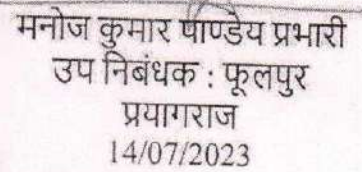 मनोज कुमार पाण्डेय प्रभारी
उप निबंधक : फूलपुर
प्रयागराज
14/07/2023